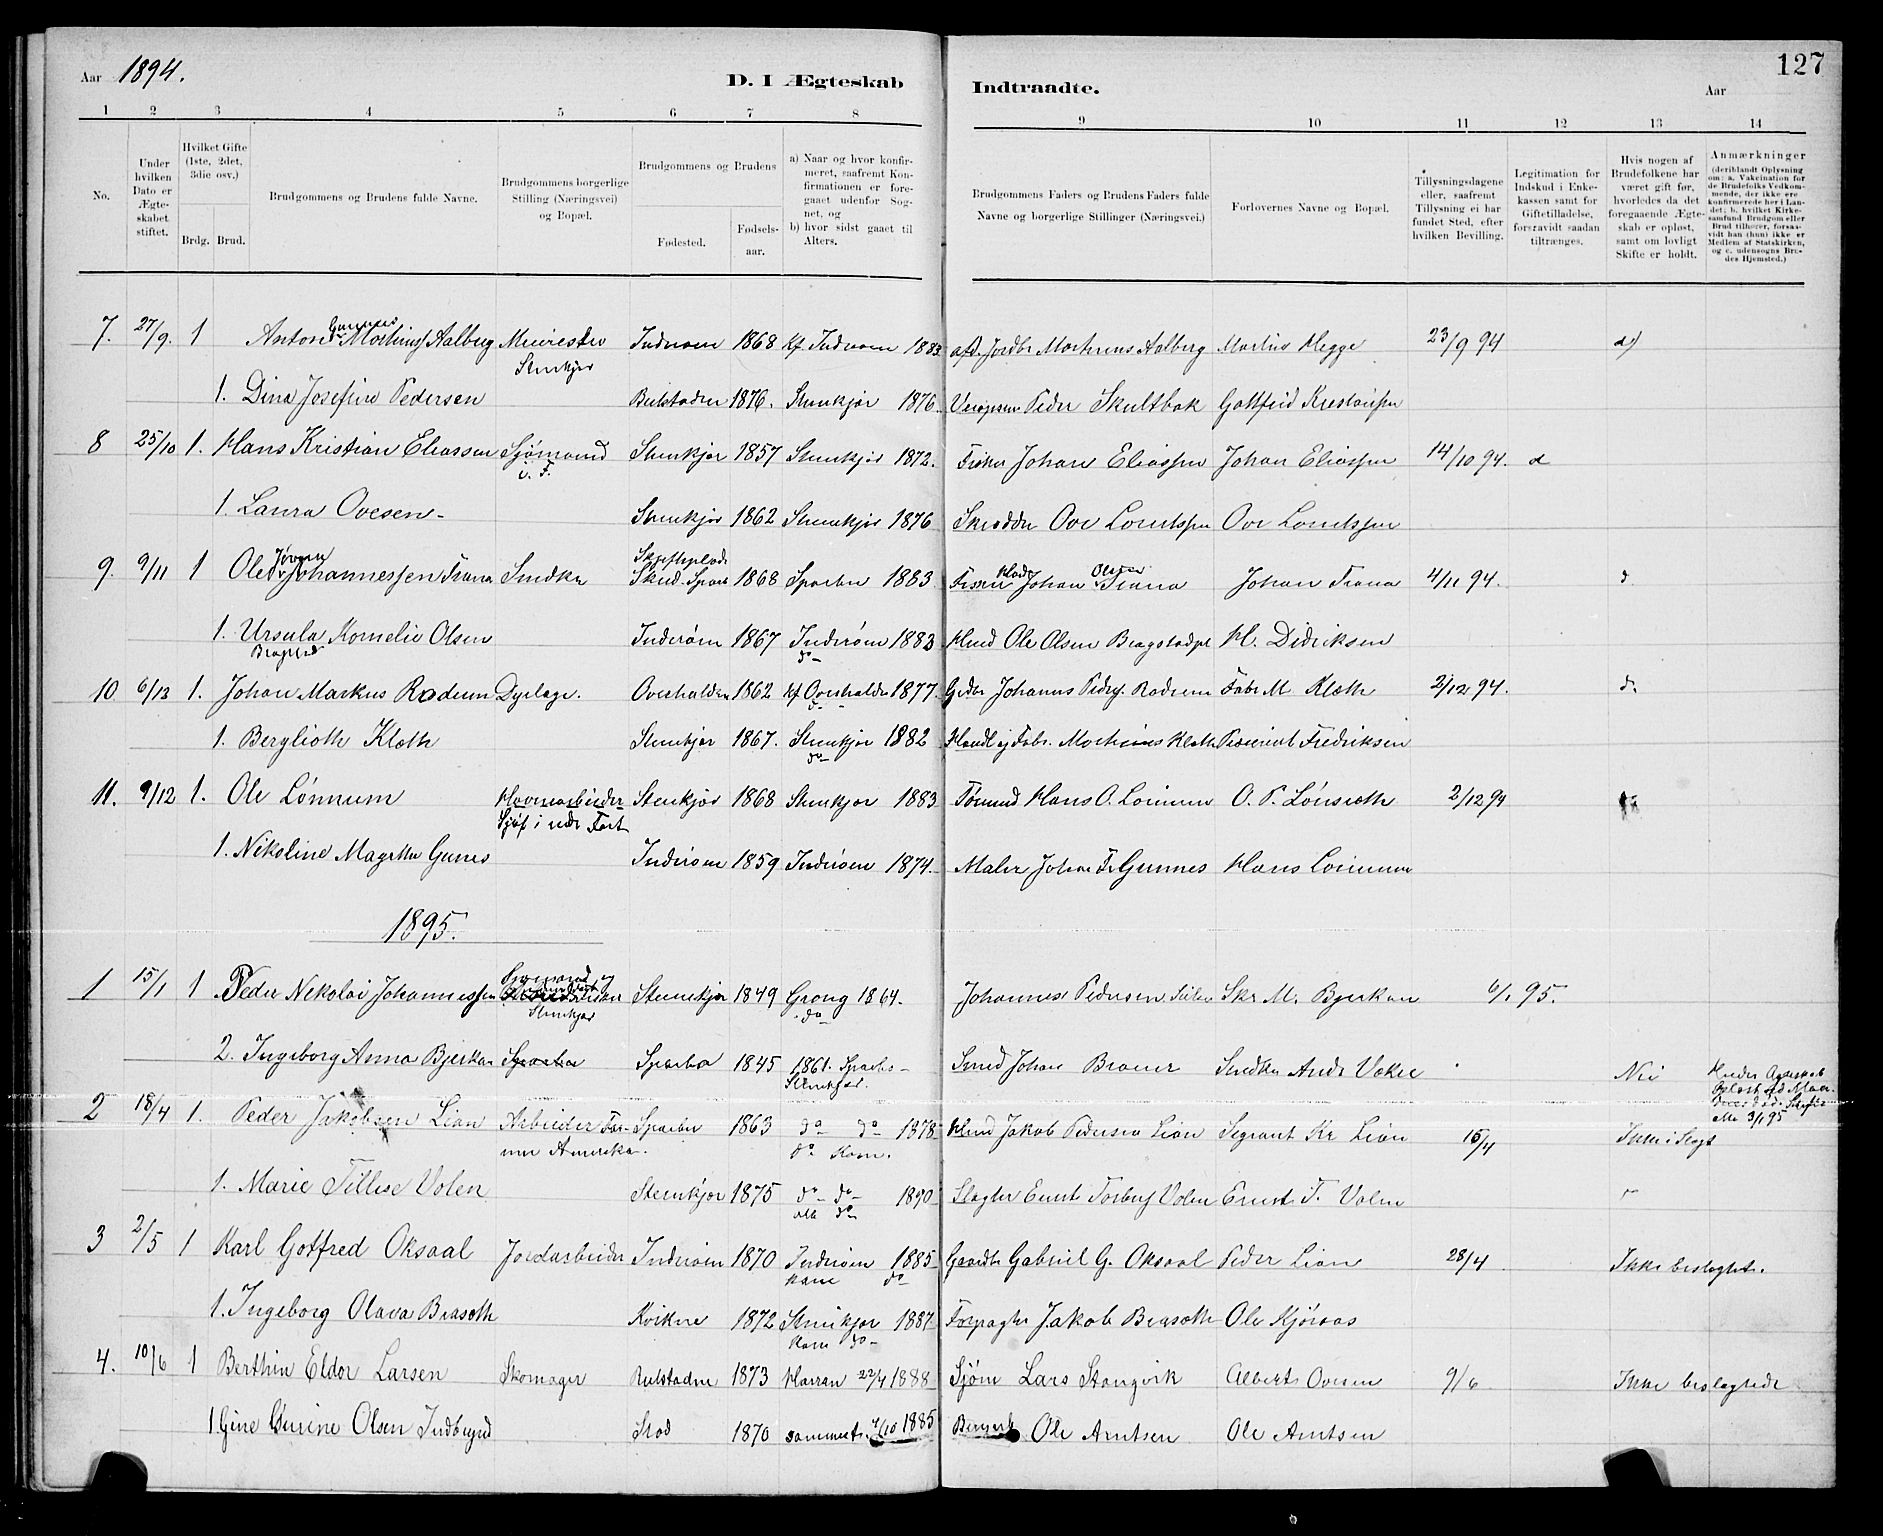 Aar 1894.
D. I Ægteskab Indtraadte.
Aar
127
1 2 3 4 5 6 7 8 9 10 11 12 13 14
No.
Under hvilken Dato er Ægte-skabet stiftet.
Hvilket Gifte (1ste, 2det, 3die osv.)
Brdg. Brud.
Brudgommens og Brudens fulde Navne.
Brudgommens borgerlige Stilling (Næringsvei) og Bopæl.
Brudgommens og Brudens
Fødested.
Fødsels-aar.
a) Naar og hvor konfir-meret, saafremt Kon-firmationen er fore-gaaet udenfor Sog-net, og
b) hvor sidst gaaet til Alters.
Brudgommens Faders og Brudens Faders fulde Navne og borgerlige Stillinger (Næringsvei.)
Forlovernes Navne og Bopæl.
Tillysningsdagene eller, saafremt Tillysning ei har fundet Sted, efter hvilken Bevilling.
Legitimation for Indskud i Enke-kassen samt for Giftetilladelse, forsaavidt saadan tiltrænges.
Hvis nogen af Brudefolkene har været gift før, hvorledes da det foregaaende Ægte-skab er opløst, samt om lovligt Skifte er holdt.
Anmærkninger (deriblandt Oplysning om: a. Vakcination for de Brudefolks Vedkom-mende, der ikke ere konfirmerede her i Lan-det; b. hvilket Kirke-samfund Brudgom eller Brud tilhører, forsaa-vidt han (hun) ikke er Medlem af Statskirken, og c. udensogns Bru-des Hjemsted.)
7. 27/9. 1 Anton Martinus Aalberg Murester Stenkjær Inderøen 1868 Kf. Inderøen 1883 Aalberg Martin Hegge 23/9 94
1. Dina Josefine Pedersen Beitstaden 1876. Stenkjær 1876. Peder Skultbak Gottfrid Kristansen
8 25/10 1. Hans Kristian Eliassen Sjømand i. F. Stenkjær 1857 Stenkjær 1872. Fisker Johan Eliassen Johan Eliassen 14/10 94.
1. Laura Ovesen Stenkjær 1862 Stenkjær 1876 Skrædder Ove Lorntssen Ove Lorntssen
9. 9/11 1 Ole Johannessen Trana Snedker 1868 Sparbu 1883. Johan Olsen Trana Johan Trana 4/11 94. d
1. Ursula Kornelie Olsen Inderøen 1867 Inderøen 1883 do Hmd Ole Olsen Bragstadpl H. Didriksen
10 6/12 1. Johan Markus Rodum Dyrlæge. Overhalden 1862 Kf Overhalden 1877. Gdbr Johannes Peders. Rodum Fabr M Kloth 2/12 94. d.
1. Berglioth Kloth Stenkjær 1867. Stenkjær 1882 do Handl og Fabr. Martinus Kloth Fredriksen
11. 9/12 1. Ole Lønnum Havnearbeider Stenkjær 1868 Stenkjær 1883 Hans O. Lønnum O. P. Lønseth 2/12 94
1. Nikoline Magrethe Gunnes Inderøen 1859 Inderøen 1874. Maler Johan Fr Gunnes Hans Lønnum
1895.
1 15/1 1 Peder Nikolai Johannessen Stenkjær Stenkjær 1849 Grong 1864. do Johannes Pedersen Skr M. Bjerkan 6/1 95.
2. Ingeborg Anna Bjerkan Sparbu Sparbu 1845 1861. Sparbu Stenkjær. Smed Johan Snedker Andr Vekre Nei
3/1 95
2 18/4 1. Peder Jakobsen Lian Arbeider Amerika. Sparbu 1863 do do 1878 do Kom. Hmd Jakob Pedersen Lian Sergeant Kr Lian 15/4 Ikke i Slægt
1. Marie Tillise Volen Stenkjær 1875 do do 1890 do Slagter Ernst Torberg Volen Ernst T. Volen
3 2/5 1 Karl Gotfred Oksaal Jordarbeider Inderøen 1870 Inderøen 1885 do Gaardbr Gabriel G. Oksaal Peder Lian 28/4 Ikke beslægtet.
1. Ingeborg Olava Braseth Kvikne 1872 Stenkjær 1887 Kom do Forpagter Jakob Braseth Ole Kjøraas
4. 10/6 1 Berthin Eldor Larsen Skomager Beitstaden 1873 Harran 22/4 1888 Sjøm Lars Stangvik Albert Ovesen 9/6 Ikke beslægtede
1 Gine Olsen Indbryd Stod 1870 sammest. 4/10 1885 Ole Arntsen Ole Arntsen